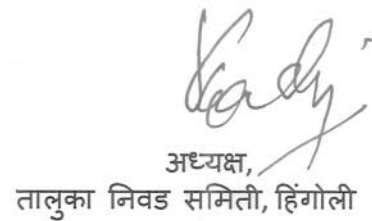 अध्यक्ष,
तालुका निवड समिती, हिंगोली